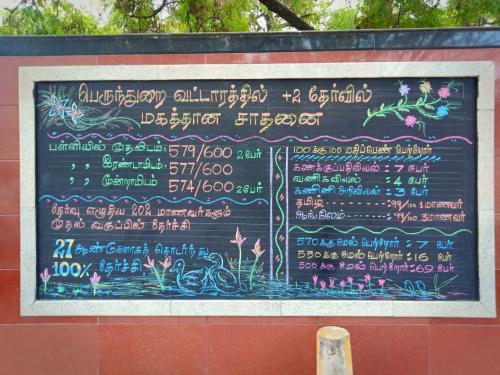 பெருந்துறை வட்டாரத்தில் +2 தேர்வில்
மகத்தான சாதனை
பள்ளியில் முதலிடம் 579/600 2 பேர்
" " இரண்டாமிடம் 577/600
" " மூன்றாமிடம் 574/600 2 பேர்
தேர்வு எழுதிய 202 மாணவர்களும்
முதல் வகுப்பில் தேர்ச்சி
21 ஆண்டுகளாகத் தொடர்ந்து
100% தேர்ச்சி
100 க்கு 100 மதிப்பெண் பெற்றோர்
கணக்குப்பதிவியல் : 7 பேர்
வணிகவியல் : 4 பேர்
கணினி அறிவியல் : 3 பேர்
தமிழ் : 99/100 1 மாணவர்
ஆங்கிலம் : 99/100 3 மாணவர்
570 க்கு மேல் பெற்றோர் : 7 பேர்
550 க்கு மேல் பெற்றோர் : 16 பேர்
500 க்கு மேல் பெற்றோர் : 69 பேர்